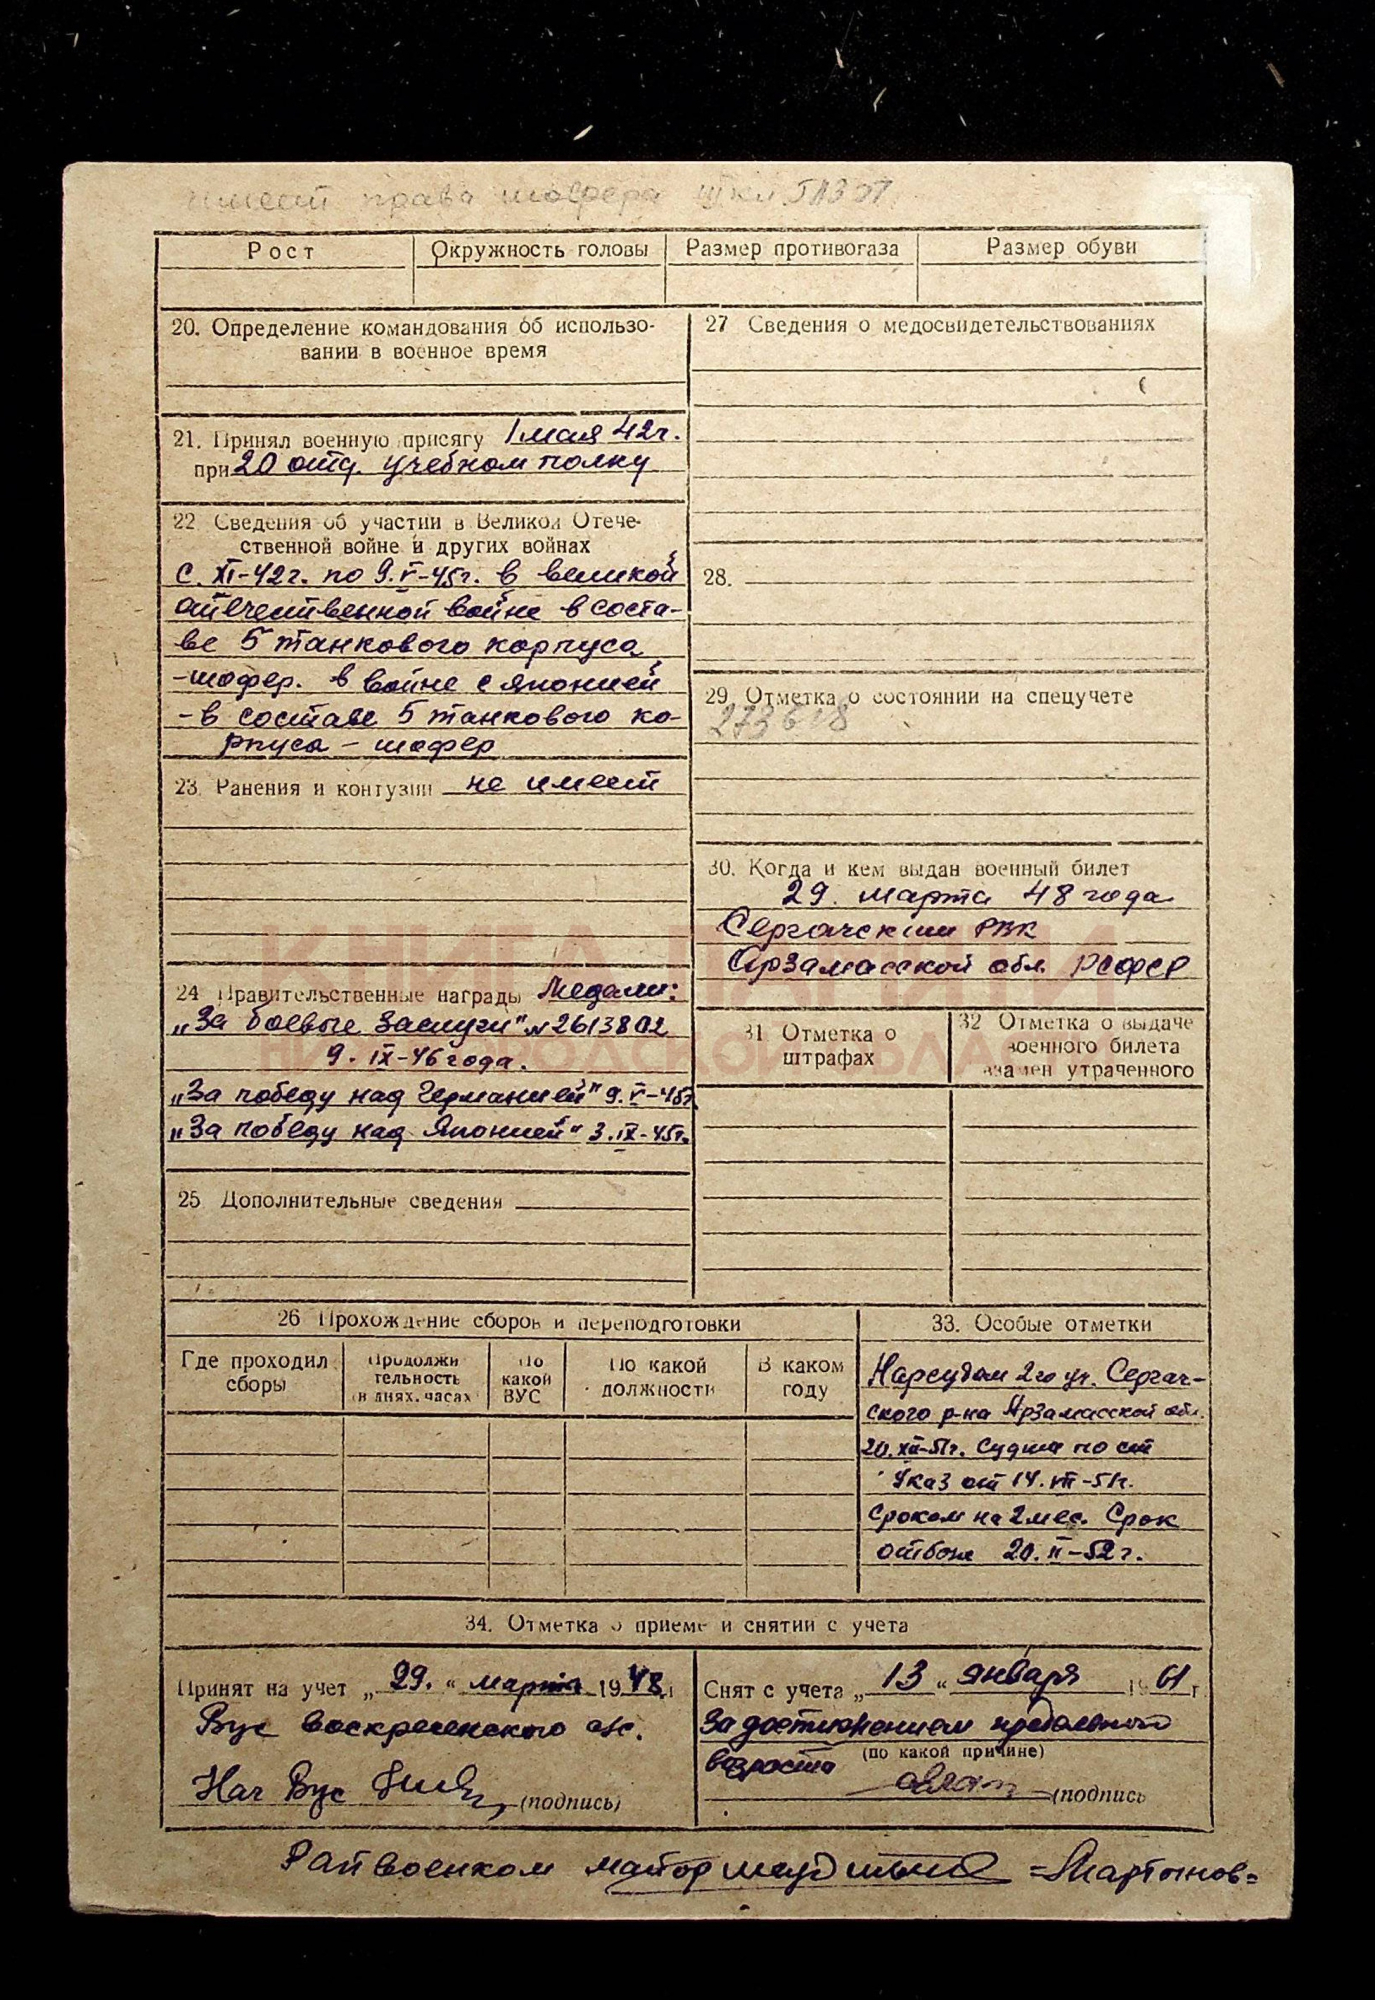 имеет права шофера III кл.
Рост
Окружность головы
Размер противогаза
Размер обуви
20. Определение командования об использо-
вании в военное время
21. Принял военную присягу 1 мая 42г.
при 20 отд. учебном полку
22 Сведения об участии в Великой Отече-
ственной войне и других войнах
с. XI-42г. по 9.V-45г. в великой
отечественной войне в соста-
ве 5 танкового корпуса
-шофер. в войне с японией
- в составе 5 танкового ко-
рпуса - шофер
23. Ранения и контузии не имеет
24 Правительственные награды Медали:
„За боевые заслуги" N 2613802
9. IX-46 года.
„За победу над Германией" 9.V-45г.
„За победу над Японией" 3.IX-45г.
25 Дополнительные сведения
27 Сведения о медосвидетельствованиях
28.
29. Отметка о состоянии на спецучете
30. Когда и кем выдан военный билет
29. марта 48 года
Сергачским РВК
Арзамасской обл. РСФСР
КНИГА ПАМЯТИ
НИЖЕГОРОДСКОЙ ОБЛАСТИ
31 Отметка о
штрафах
32 Отметка о выдаче
военного билета
взамен утраченного
26 Прохождение сборов и переподготовки
Где проходил
сборы
Продолжи
тельность
(в днях, часах)
По
какой
ВУС
По какой
должности
В каком
году
33. Особые отметки
Нарсудом 2го уч. Сергач-
ского р-на Арзамасской обл.
20.XII-51г. судим по ст
Указ от 14.VII-51г.
Сроком на 2 мес. Срок
отбыл 20.II-52г.
34. Отметка о приеме и снятии с учета
Принят на учет „29." марта 1948 г
Вус воскресенского с/с.
Нач Вус
(подпись)
Снят с учета „13" января 1961 г
За достижением предельного
возраста (по какой причине)
(подпись
Райвоенком майор =Мартынов=